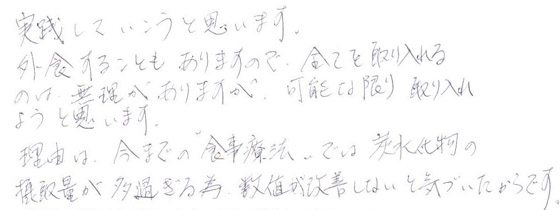 実践していこうと思います。
外食することもありますので、全てを取り入れる
のは、無理がありますが、可能な限り取り入れ
ようと思います。
理由は、今までの"食事療法"では炭水化物の
摂取量が多過ぎる為、数値が改善しないと気づいたからです。